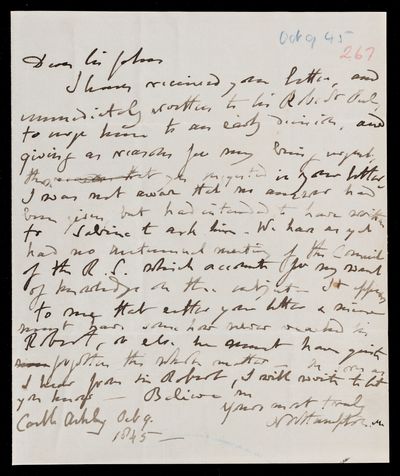 Oct 9 45
267
Dear Sir John
I have received your letter, and
immediately written to Sir Robert
to urge him to an early decision, and
giving as reasons for my being urgent,
those that you suggested in your letter
I was not aware that no answer had
been given but had intended to have written
to Sabine to ask him. We have as yet
had no meeting of the Council
of the R. S. which accounts for my want
of knowledge on the subject. It appears
to me that either your letter or mine
must have some how never reached Sir
Robert, or else he must have quite
forgotten the whole matter. As soon as
I hear from Sir Robert, I will write to let
you know — Believe me
Yours most truly
Castle Ashby Oct 9.
Northampton
1845 —